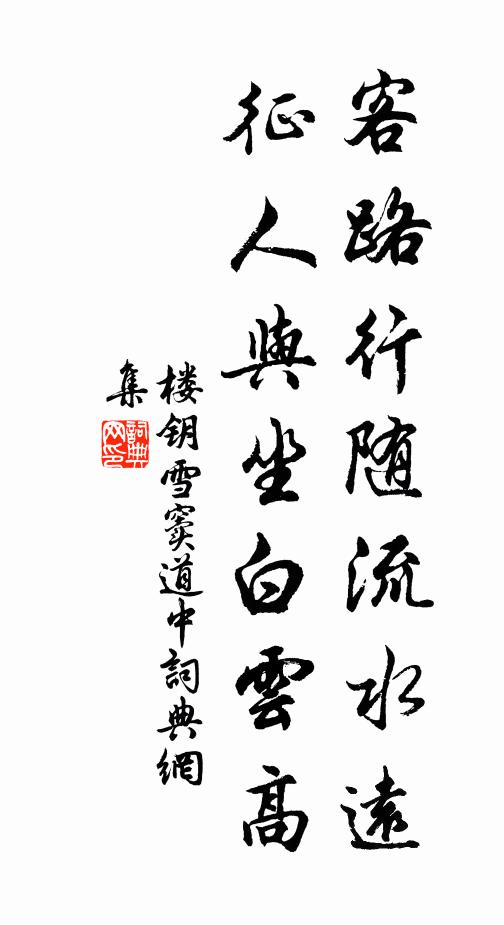 客路行随流水遠
征人與坐白雲高
楼钥雪竇道中詞典網
集
詞典
网印